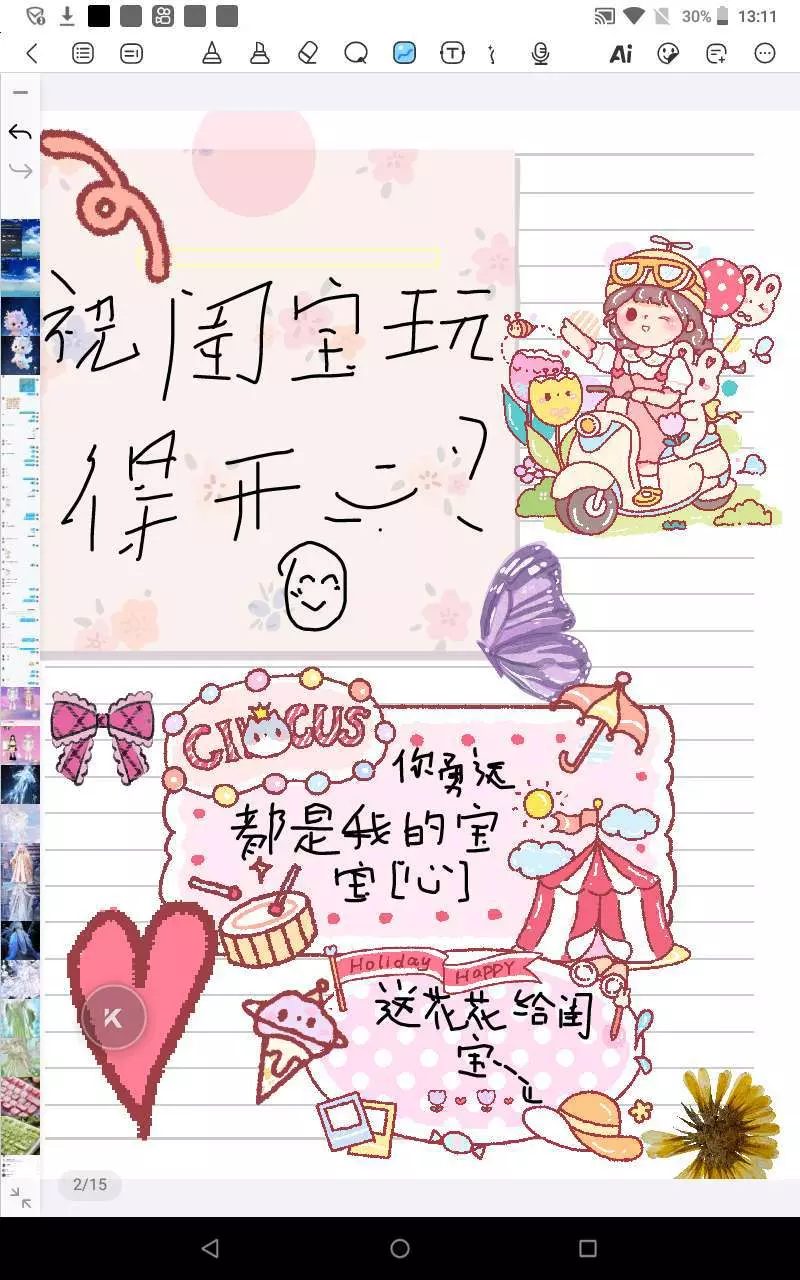 30% 13:11
Ai
祝闺宝玩
得开心?
CIRCUS
你勇远
都是我的宝
宝[心]
Holiday HAPPY
送花花给闺
宝
K
2/15